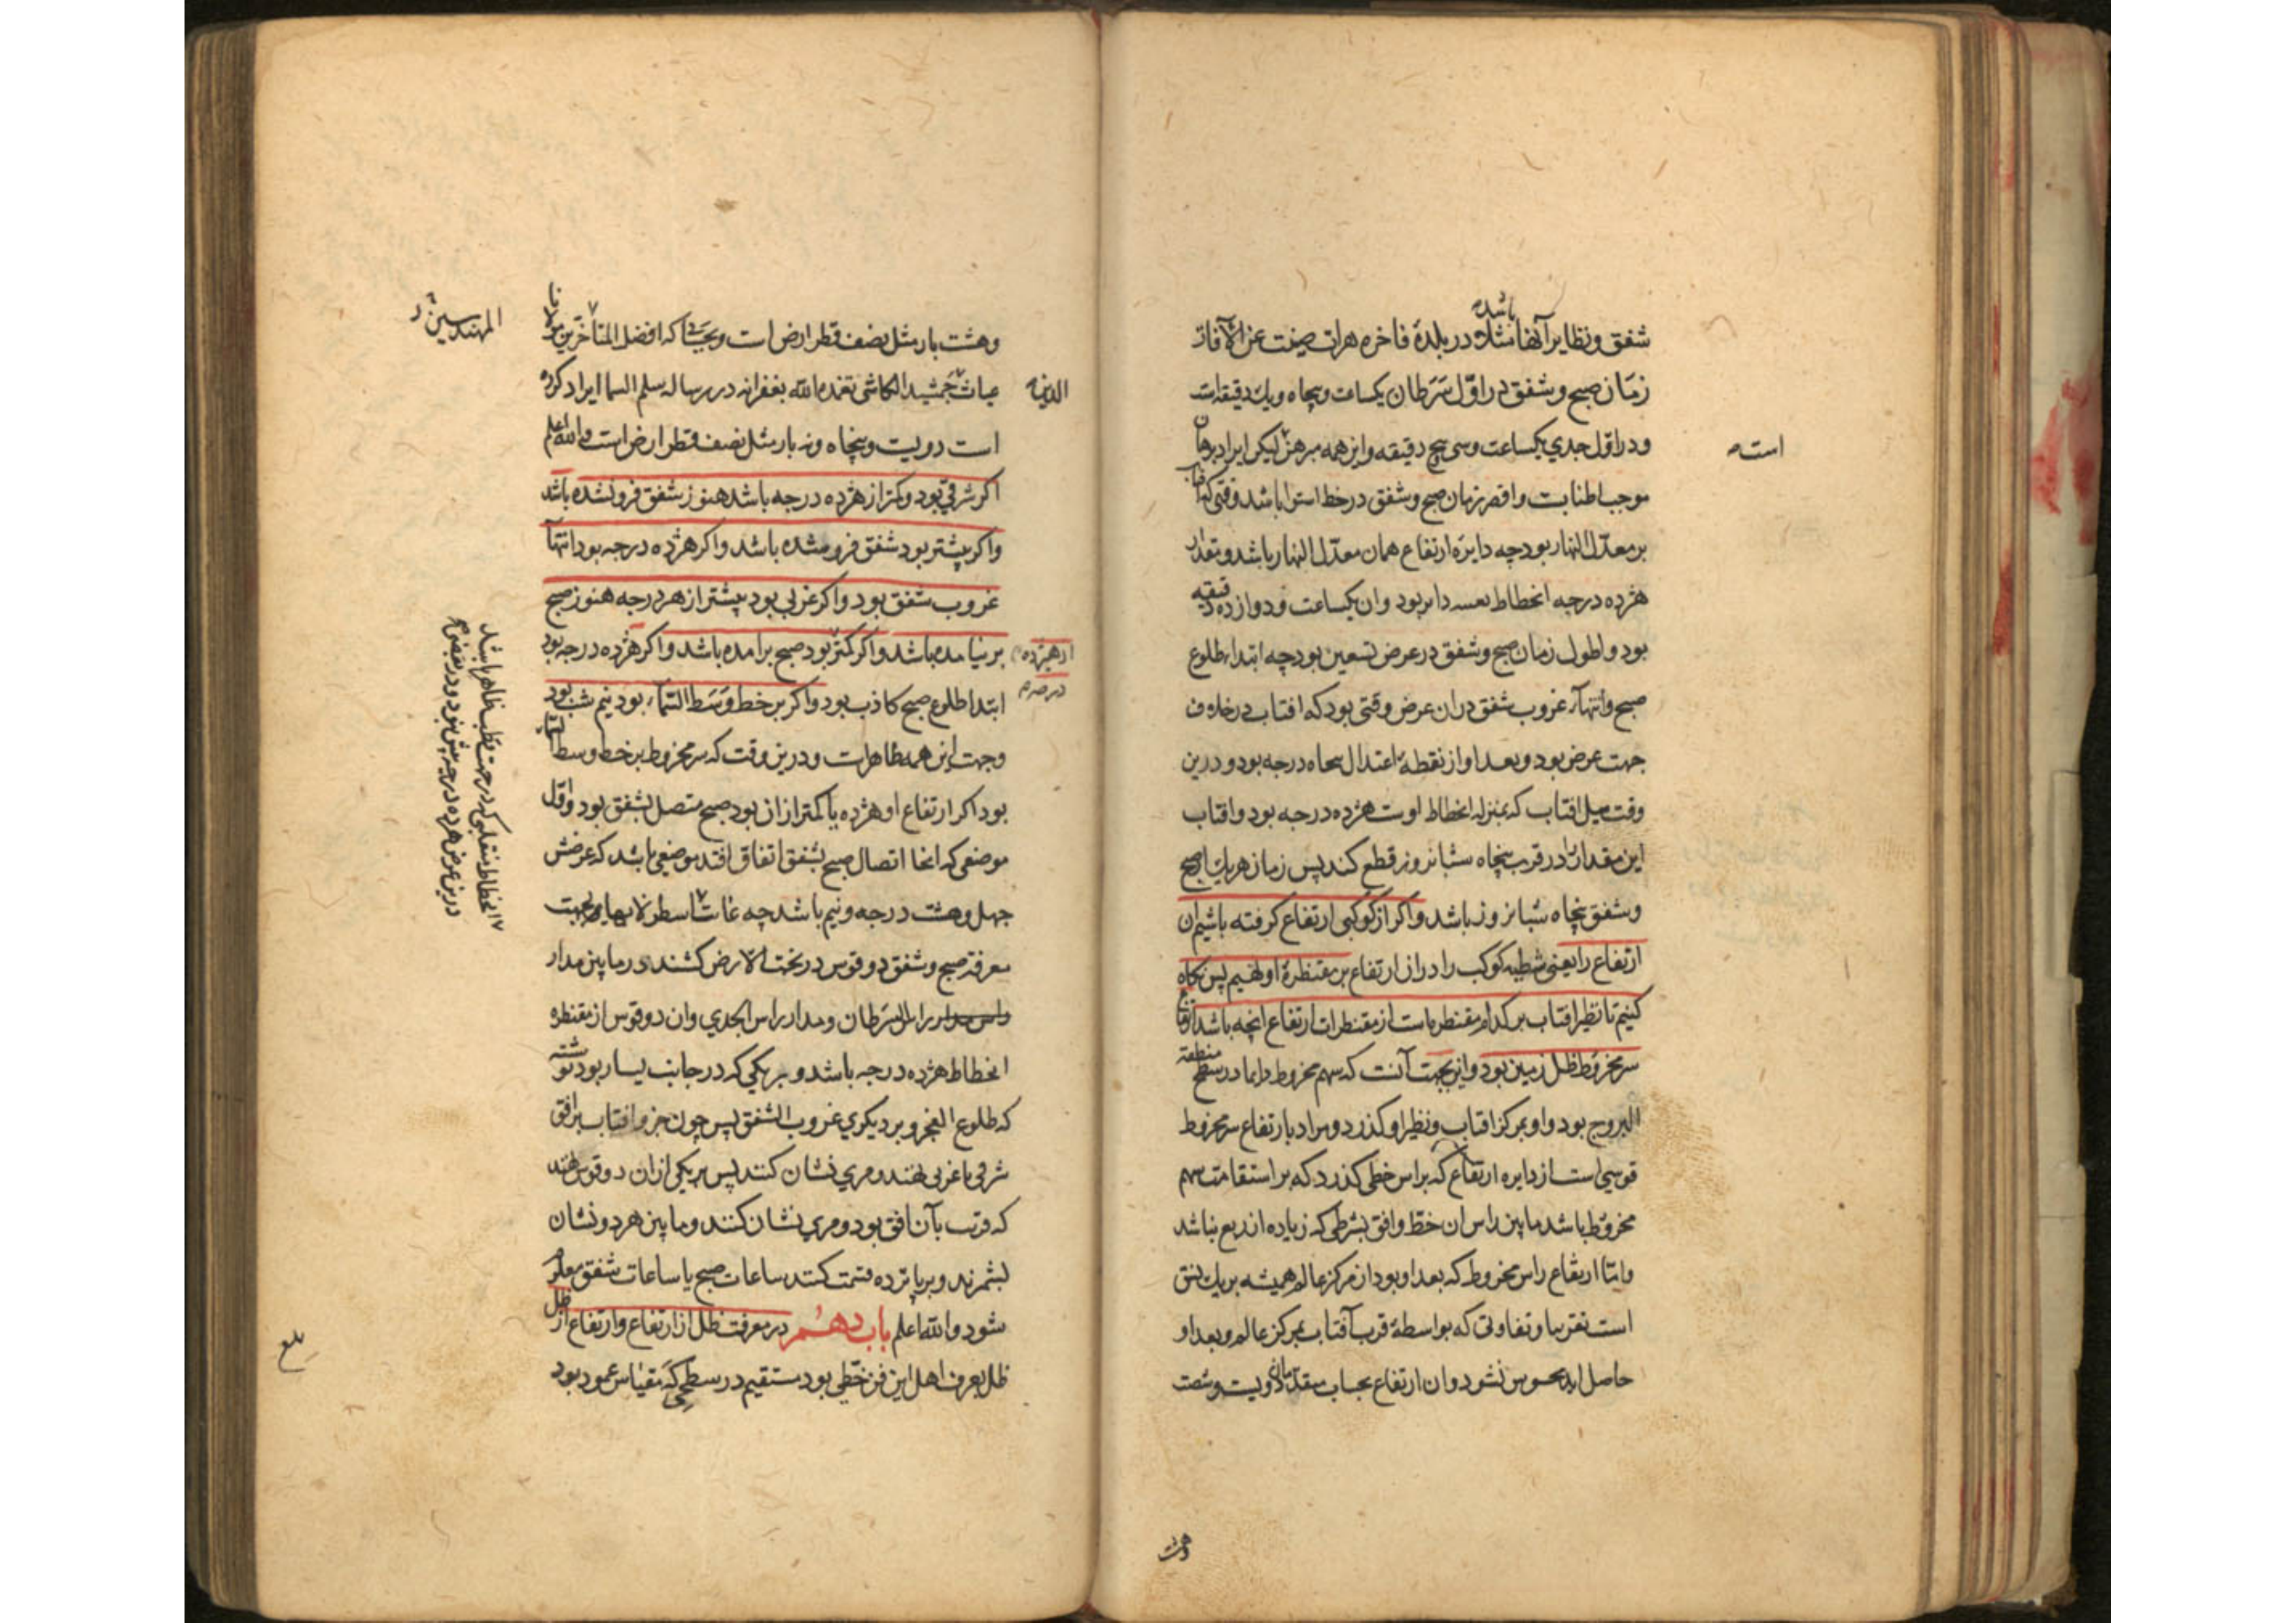 باشد
شفق و نظایر آنها مثلا در بلدهٔ فاخره هرات صینت عن الآفات
زمان صبح و شفق در اول سرطان یکساعت و پنجاه و یک دقیقه است
و در اول جدی یکساعت و سی پنج دقیقه و این همه مبرهن لیکن ایراد برهان
است
موجب اطناب و اقصر زمان صبح و شفق در خط استوا باشد وقتی که افتاب
بر معدل النهار بود چه دایره ارتفاع همان معدل النهار باشد و بمقدار
هژده درجه انحطاط بعینه دایر بود و ان یکساعت و دوازده دقیقه
بود و اطول زمان صبح و شفق در عرض تسعین بود چه ابتداء طلوع
صبح و انتهاء غروب شفق دران عرض وقتی بود که افتاب در خلاف
جهت عرض بود و بعد او از نقطهٔ اعتدال پنجاه درجه بود و درین
وقت میل افتاب که بمنزله انحطاط اوست هژده درجه بود و افتاب
این مقدار را در قرب پنجاه شبانروز قطع کند پس زمان هر یک از صبح
و شفق پنجاه شبانروز باشد و اگر از کوکبی ارتفاع کرفته باشیم ان
ارتفاع را یعنی شطیه کوکب را در ان ارتفاع بر مقنطرهٔ او نهیم پس نکاه
کنیم تا نظیر افتاب بر کدام مقنطره است از مقنطرات ارتفاع انچه باشد ارتفاع
سر مخروط ظل زمین بود و این بجهت آنست که سهم مخروط دایما در سطح منطقة
البروج بود و او بمرکز افتاب و نظیر او کذرد و مراد بارتفاع سر مخروط
قوسی است از دایره ارتفاع که براس خطی کذرد که بر استقامت سهم
مخروط باشد مابین راس ان خط و افق بشرطی که زیاده از ربع نباشد
و اما ارتفاع راس مخروط که بعد او بود از مرکز عالم همیشه بر یک نسق
است تقریبا و تفاوتی که بواسطهٔ قرب آفتاب بمرکز عالم و بعد او
حاصل اید محسوس نشود و ان ارتفاع بحساب متقدمان دویست و شصت
وهشت
و هشت بار مثل نصف قطر ارض است و بحسابی که افضل المتأخرین مولانا
المهندسین
غیاث جمشید الکاشی تغمده الله بغفرانه در رساله سلم السما ایراد کرده
الدین
است دویست و پنجاه و نه بار مثل نصف قطر ارض است والله اعلم
اکر شرقی بود و کمتر از هژده درجه باشد هنوز شفق فرو نشده باشد
و اکر بیشتر بود شفق فرو شده باشد و اکر هژده درجه بود انتهاء
غروب شفق بود و اکر غربی بود بیشتر از هژده درجه هنوز صبح
بر نیامده باشد و اکر کمتر بود صبح برامده باشد و اکر هژده درجه بود
از هیژده
درجه
ابتدا طلوع صبح کاذب بود و اکر بر خط وسط السماء بود نیم شب بود
و جهت این همه ظاهرست و درین وقت که سر مخروط بر خط وسط السماء
بود اکر ارتفاع او هژده یا کمتر از ان بود صبح متصل بشفق بود و اول
موضعی که انجا اتصال صبح بشفق اتفاق افتد موضعی باشد که عرضش
چهل و هشت درجه و نیم باشد چه غایت
انحطاط منقلبی که در جهت قطب ظاهر باشد
درین عرض هژده درجه بیش نبود و در بعضی
معرفة صبح و شفق دو قوس در تحت الارض کشند در مابین مدار
راس السرطان و مدار راس الجدی و ان دو قوس از مقنطره
انحطاط هژده درجه باشد و بر یکی که در جانب یسار بود نوشته
که طلوع الفجر و بر دیکری غروب الشفق پس چون جزو افتاب بر افق
شرقی یا غربی نهند و مری نشان کنند پس بر یکی از ان دو قوس نهند
که قریب بآن افق بود و مری نشان کنند و مابین هر دو نشان
بشمرند و بر پانزده قسمت کنند ساعات صبح یا ساعات شفق معلوم
شود والله اعلم باب دهم در معرفت ظل از ارتفاع و ارتفاع از ظل
ظل بعرف اهل این فن خطی بود مستقیم در سطحی که مقیاس عمود بود
بلغ